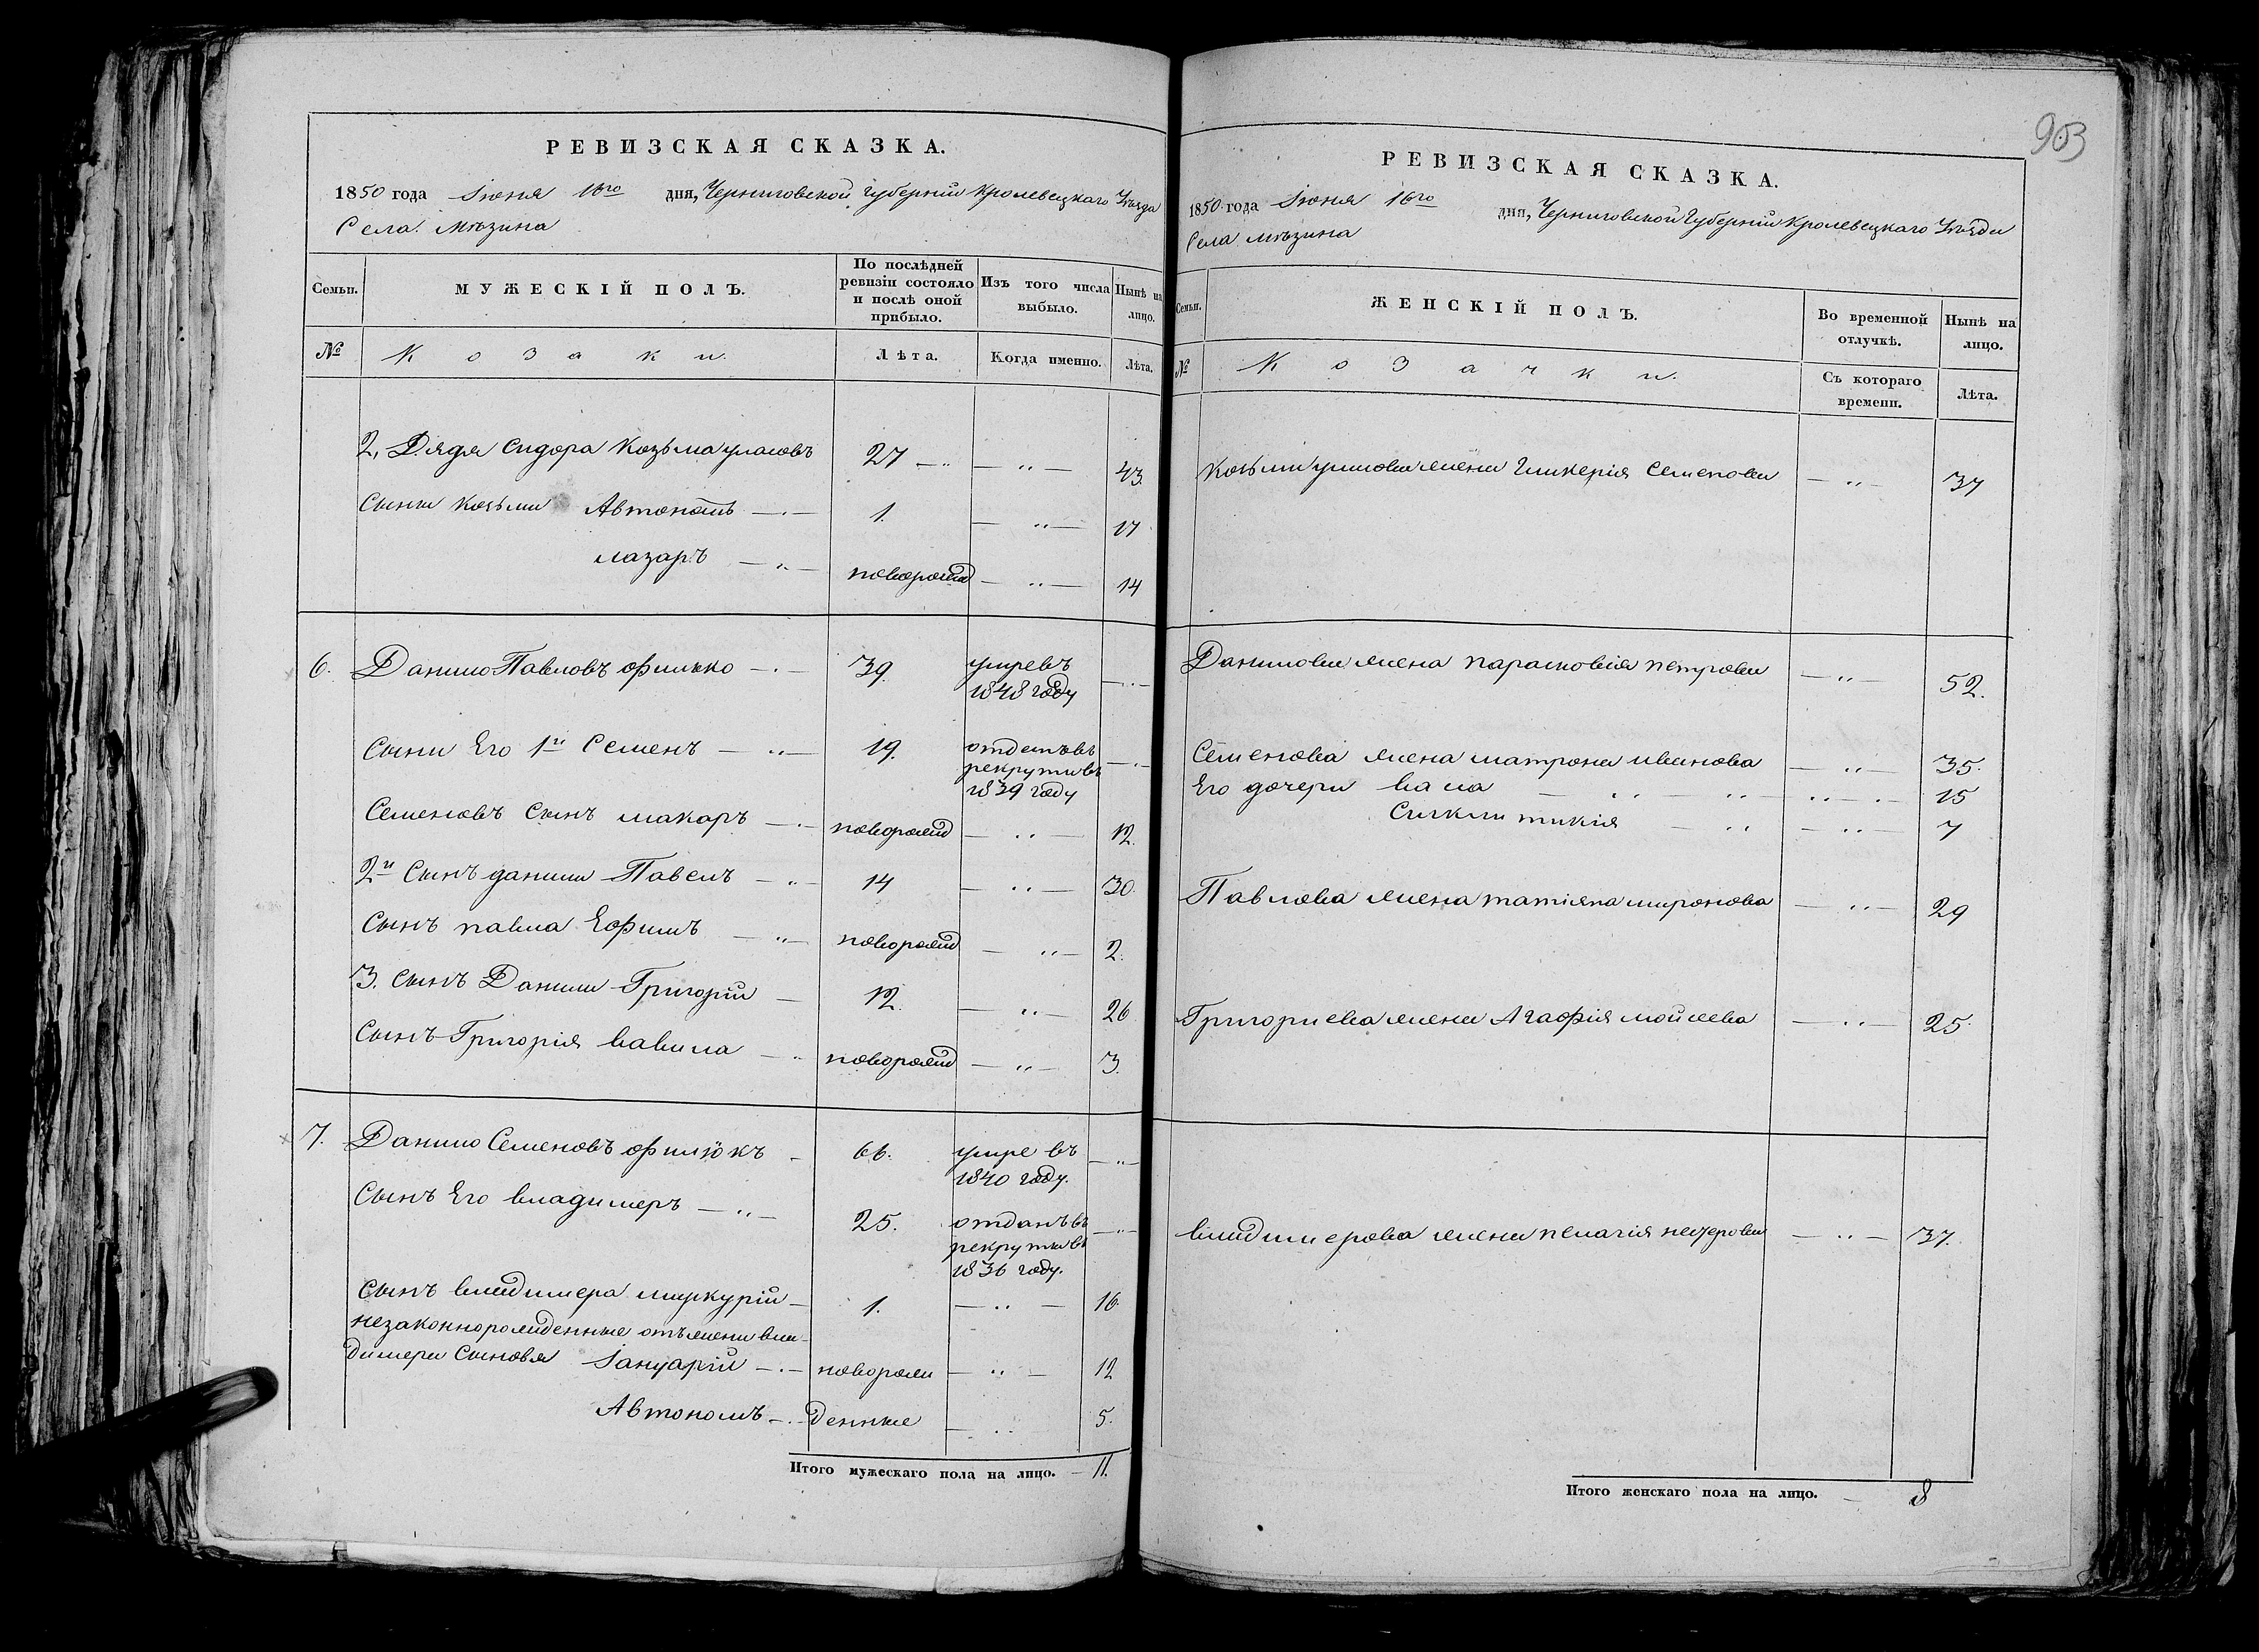 РЕВИЗСКАЯ СКАЗКА.
1850 года Іюня 16го дня, Черниговской губерніи Кролевецкаго Уѣзда
Села Мѣзина
Семьи.
МУЖЕСКІЙ ПОЛЪ.
По послѣдней ревизіи состояло и послѣ оной прибыло.
Изъ того числа выбыло.
Нынѣ на лицо.
№
Козаки.
Лѣта.
Когда именно.
Лѣта.
2, Дядя Сидора Козьма Уласовъ 27 43.
Сыны Козьмы Автономъ 1. 17
Лазаръ новорожд 14
6. Данило Павловъ Филько 39. умре въ
1848 году
Сыны Его 1й Семенъ 19. отданъ въ
рекруты въ
1839 году
Семеновъ Сынъ Макаръ новорожд 12.
2й Сынъ Данилы Павелъ 14 30.
Сынъ Павла Ефимъ новорожд 2.
3. Сынъ Данилы Григорій 12. 26
Сынъ Григорія Вавила новорожд 3.
7. Данило Семеновъ Филюкъ 66. умре въ
1840 году.
Сынъ Его Владимеръ 25. отданъ въ
рекруты въ
1836 году.
Сынъ Владимера Меркурій 1. 16.
незаконнорожденные отъ жены Вла-
димера Сыновья Іануарій новорож 12
Автономъ денные 5.
Итого мужескаго пола на лицо. 11.
903
РЕВИЗСКАЯ СКАЗКА.
1850 года Іюня 16го дня, Черниговской Губерніи Кролевецкаго Уѣзда
Села Мѣзина
Семьи.
ЖЕНСКІЙ ПОЛЪ.
Во временной отлучкѣ.
Нынѣ на лицо.
№
Козачки.
Съ котораго времени.
Лѣта.
Козьмы Уласова жена Гликерія Семенова 37
Данилова жена Парасковія Петрова 52.
Семенова жена Матрона Иванова 35.
Его дочери Васа 15
7
Павлова жена Татіяна Миронова 29
Григориева жена Агафія Мойсеева 25.
Владимерова жена Пелагія 37.
Итого женскаго пола на лицо. 8